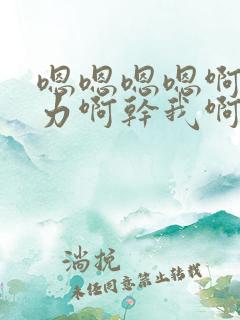 嗯嗯嗯嗯啊
力啊幹我啊
淌挽
未经同意禁止转载